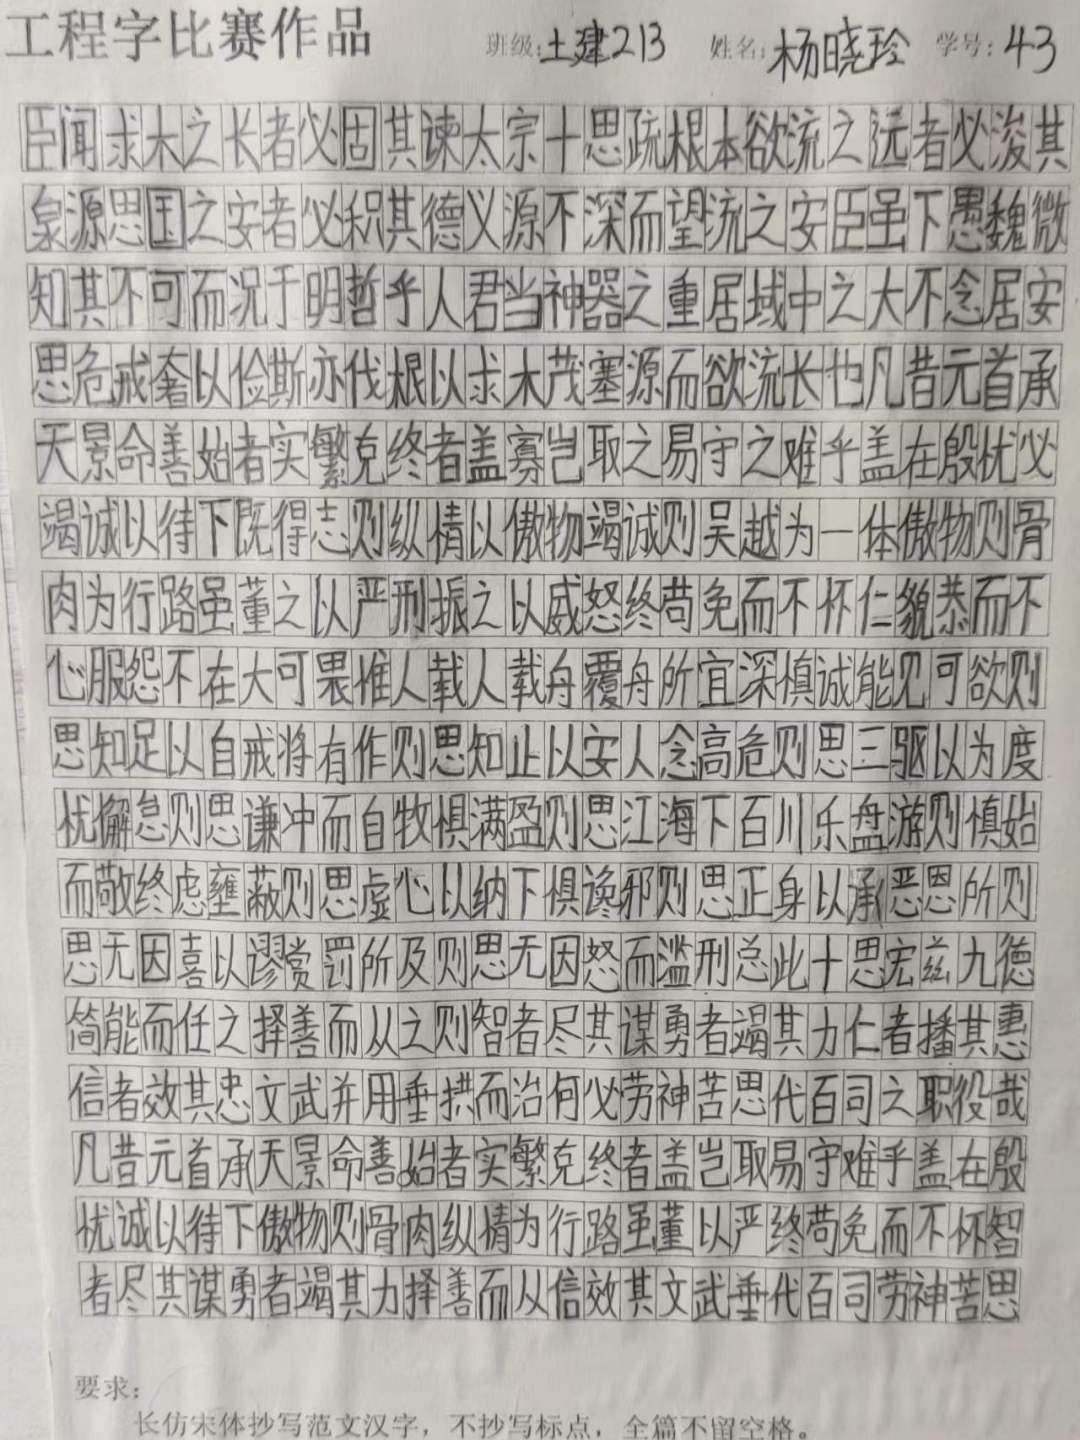 工程字比赛作品 班级:土建213 姓名:杨晓玲 学号:43
臣闻求木之长者必固其谏太宗十思疏根本欲流之远者必浚其
泉源思国之安者必积其德义源不深而望流之安臣虽下愚魏微
知其不可而况于明哲乎人君当神器之重居域中之大不念居安
思危戒奢以俭斯亦伐根以求木茂塞源而欲流长也凡昔元首承
天景命善始者实繁克终者盖寡岂取之易守之难乎盖在殷忧必
竭诚以待下既得志则纵情以傲物竭诚则吴越为一体傲物则骨
肉为行路虽董之以严刑振之以威怒终苟免而不怀仁貌恭而不
心服怨不在大可畏惟人载人载舟覆舟所宜深慎诚能见可欲则
思知足以自戒将有作则思知止以安人念高危则思三驱以为度
忧懈怠则思谦冲而自牧惧满盈则思江海下百川乐盘游则慎始
而敬终虑壅蔽则思虚心以纳下惧谗邪则思正身以承恶恩所则
思无因喜以谬赏罚所及则思无因怒而滥刑总此十思宏兹九德
简能而任之择善而从之则智者尽其谋勇者竭其力仁者播其惠
信者效其忠文武并用垂拱而治何必劳神苦思代百司之职役哉
凡昔元首承天景命善始者实繁克终者盖岂取易守难乎盖在殷
忧诚以待下傲物则骨肉纵情为行路虽董以严终苟免而不怀智
者尽其谋勇者竭其力择善而从信效其文武垂代百司劳神苦思
要求:
长仿宋体抄写范文汉字，不抄写标点，全篇不留空格。